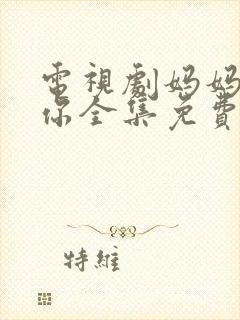 電視劇妈妈
你全集免費
特維